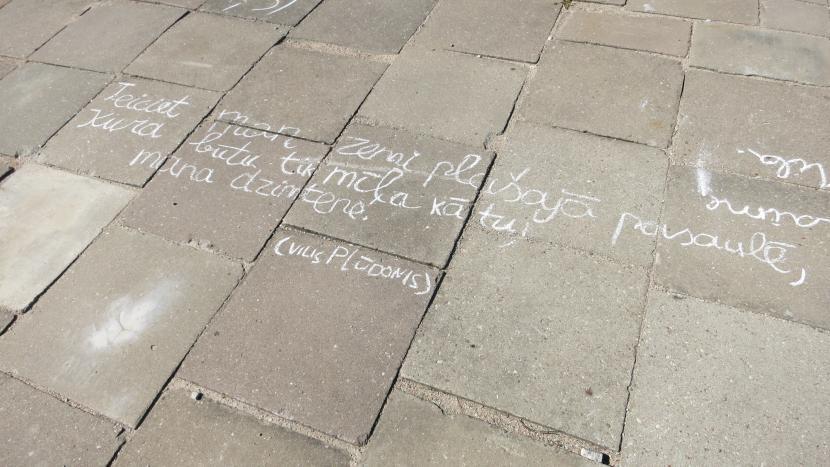 Teicat man zemi plašajā pasaulē,
Kura būtu tik mīļa kā tu,
mana dzimtene.
(VILIS PLŪDONIS)